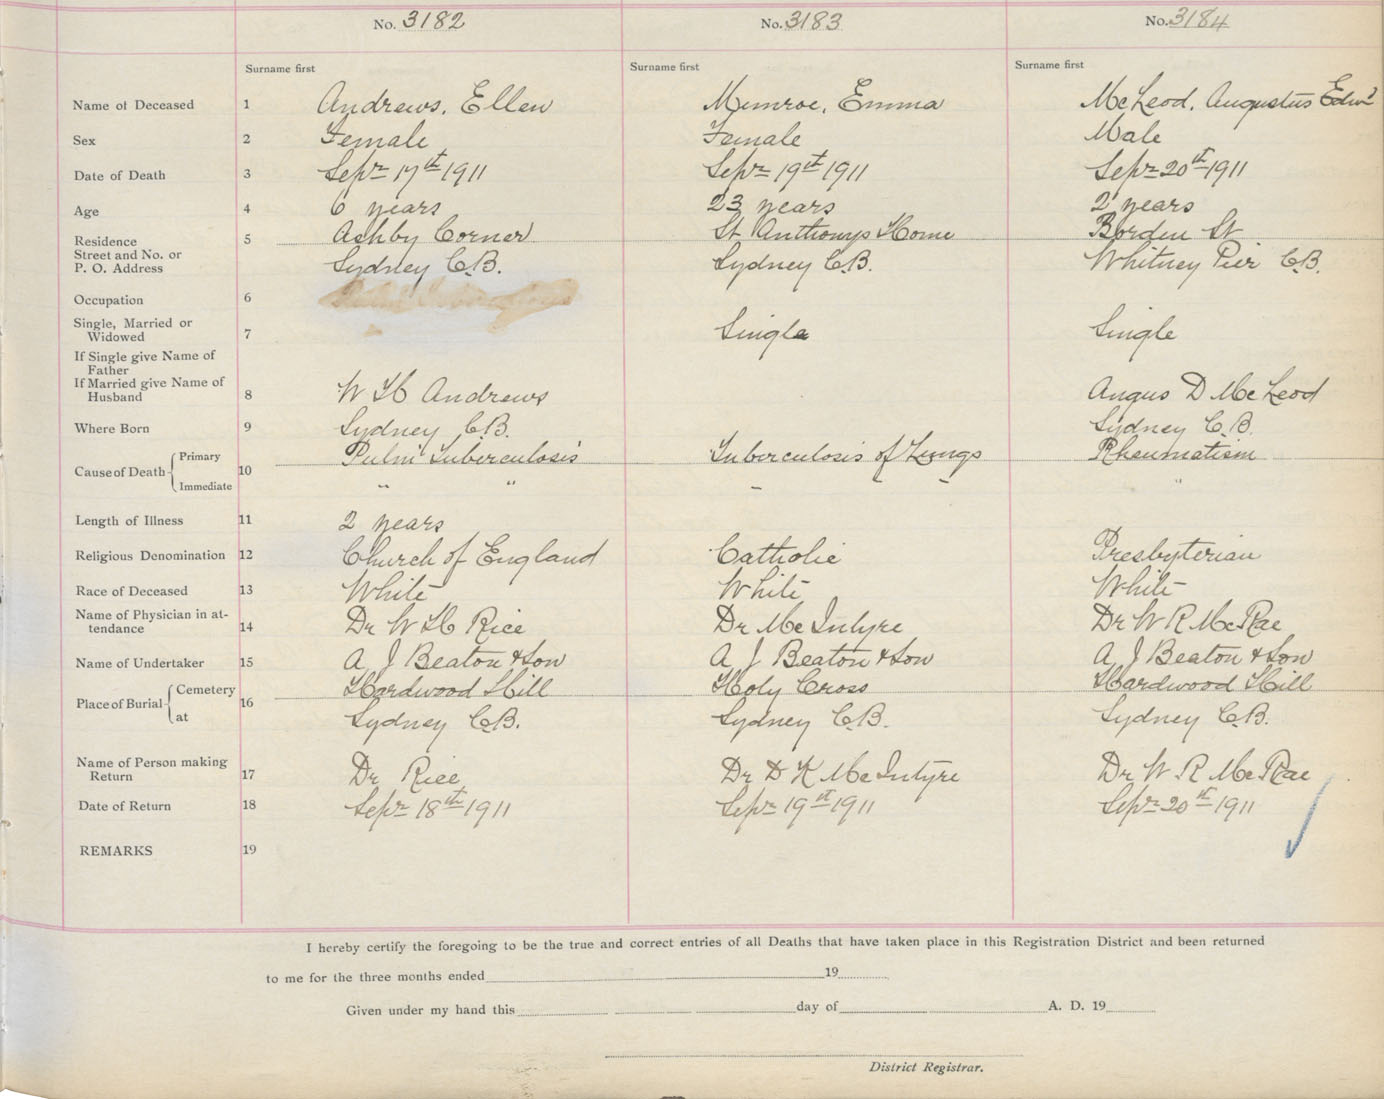 No. 3182 No. 3183 No. 3184
Surname first Surname first Surname first
Name of Deceased 1 Andrews, Ellen Munroe, Emma McLeod, Augustus Edwd
Sex 2 Female Female Male
Date of Death 3 Sepr 17th 1911 Sepr 19th 1911 Sepr 20th 1911
Age 4 6 years 23 years 2 years
Residence 5 Ashby Corner St Anthonys Home Borden St
Street and No. or
P. O. Address Sydney C.B. Sydney C.B. Whitney Pier C.B.
Occupation 6
Single, Married or
Widowed 7 Single Single
If Single give Name of
Father
If Married give Name of
Husband 8 W H Andrews Angus D McLeod
Where Born 9 Sydney C.B. Sydney C.B.
Cause of Death Primary 10 Pulm Tuberculosis Tuberculosis of Lungs Rheumatism
Immediate " " "
Length of Illness 11 2 years
Religious Denomination 12 Church of England Catholic Presbyterian
Race of Deceased 13 White White White
Name of Physician in at-
tendance 14 Dr W H Rice Dr McIntyre Dr W R McRae
Name of Undertaker 15 A J Beaton & Son A J Beaton & Son A J Beaton & Son
Place of Burial Cemetery 16 Hardwood Hill Holy Cross Hardwood Hill
at Sydney C.B. Sydney C.B. Sydney C.B.
Name of Person making
Return 17 Dr Rice Dr D K McIntyre Dr W R McRae
Date of Return 18 Sepr 18th 1911 Sepr 19th 1911 Sepr 20th 1911
REMARKS 19
I hereby certify the foregoing to be the true and correct entries of all Deaths that have taken place in this Registration District and been returned
to me for the three months ended 19
Given under my hand this day of A. D. 19
District Registrar.